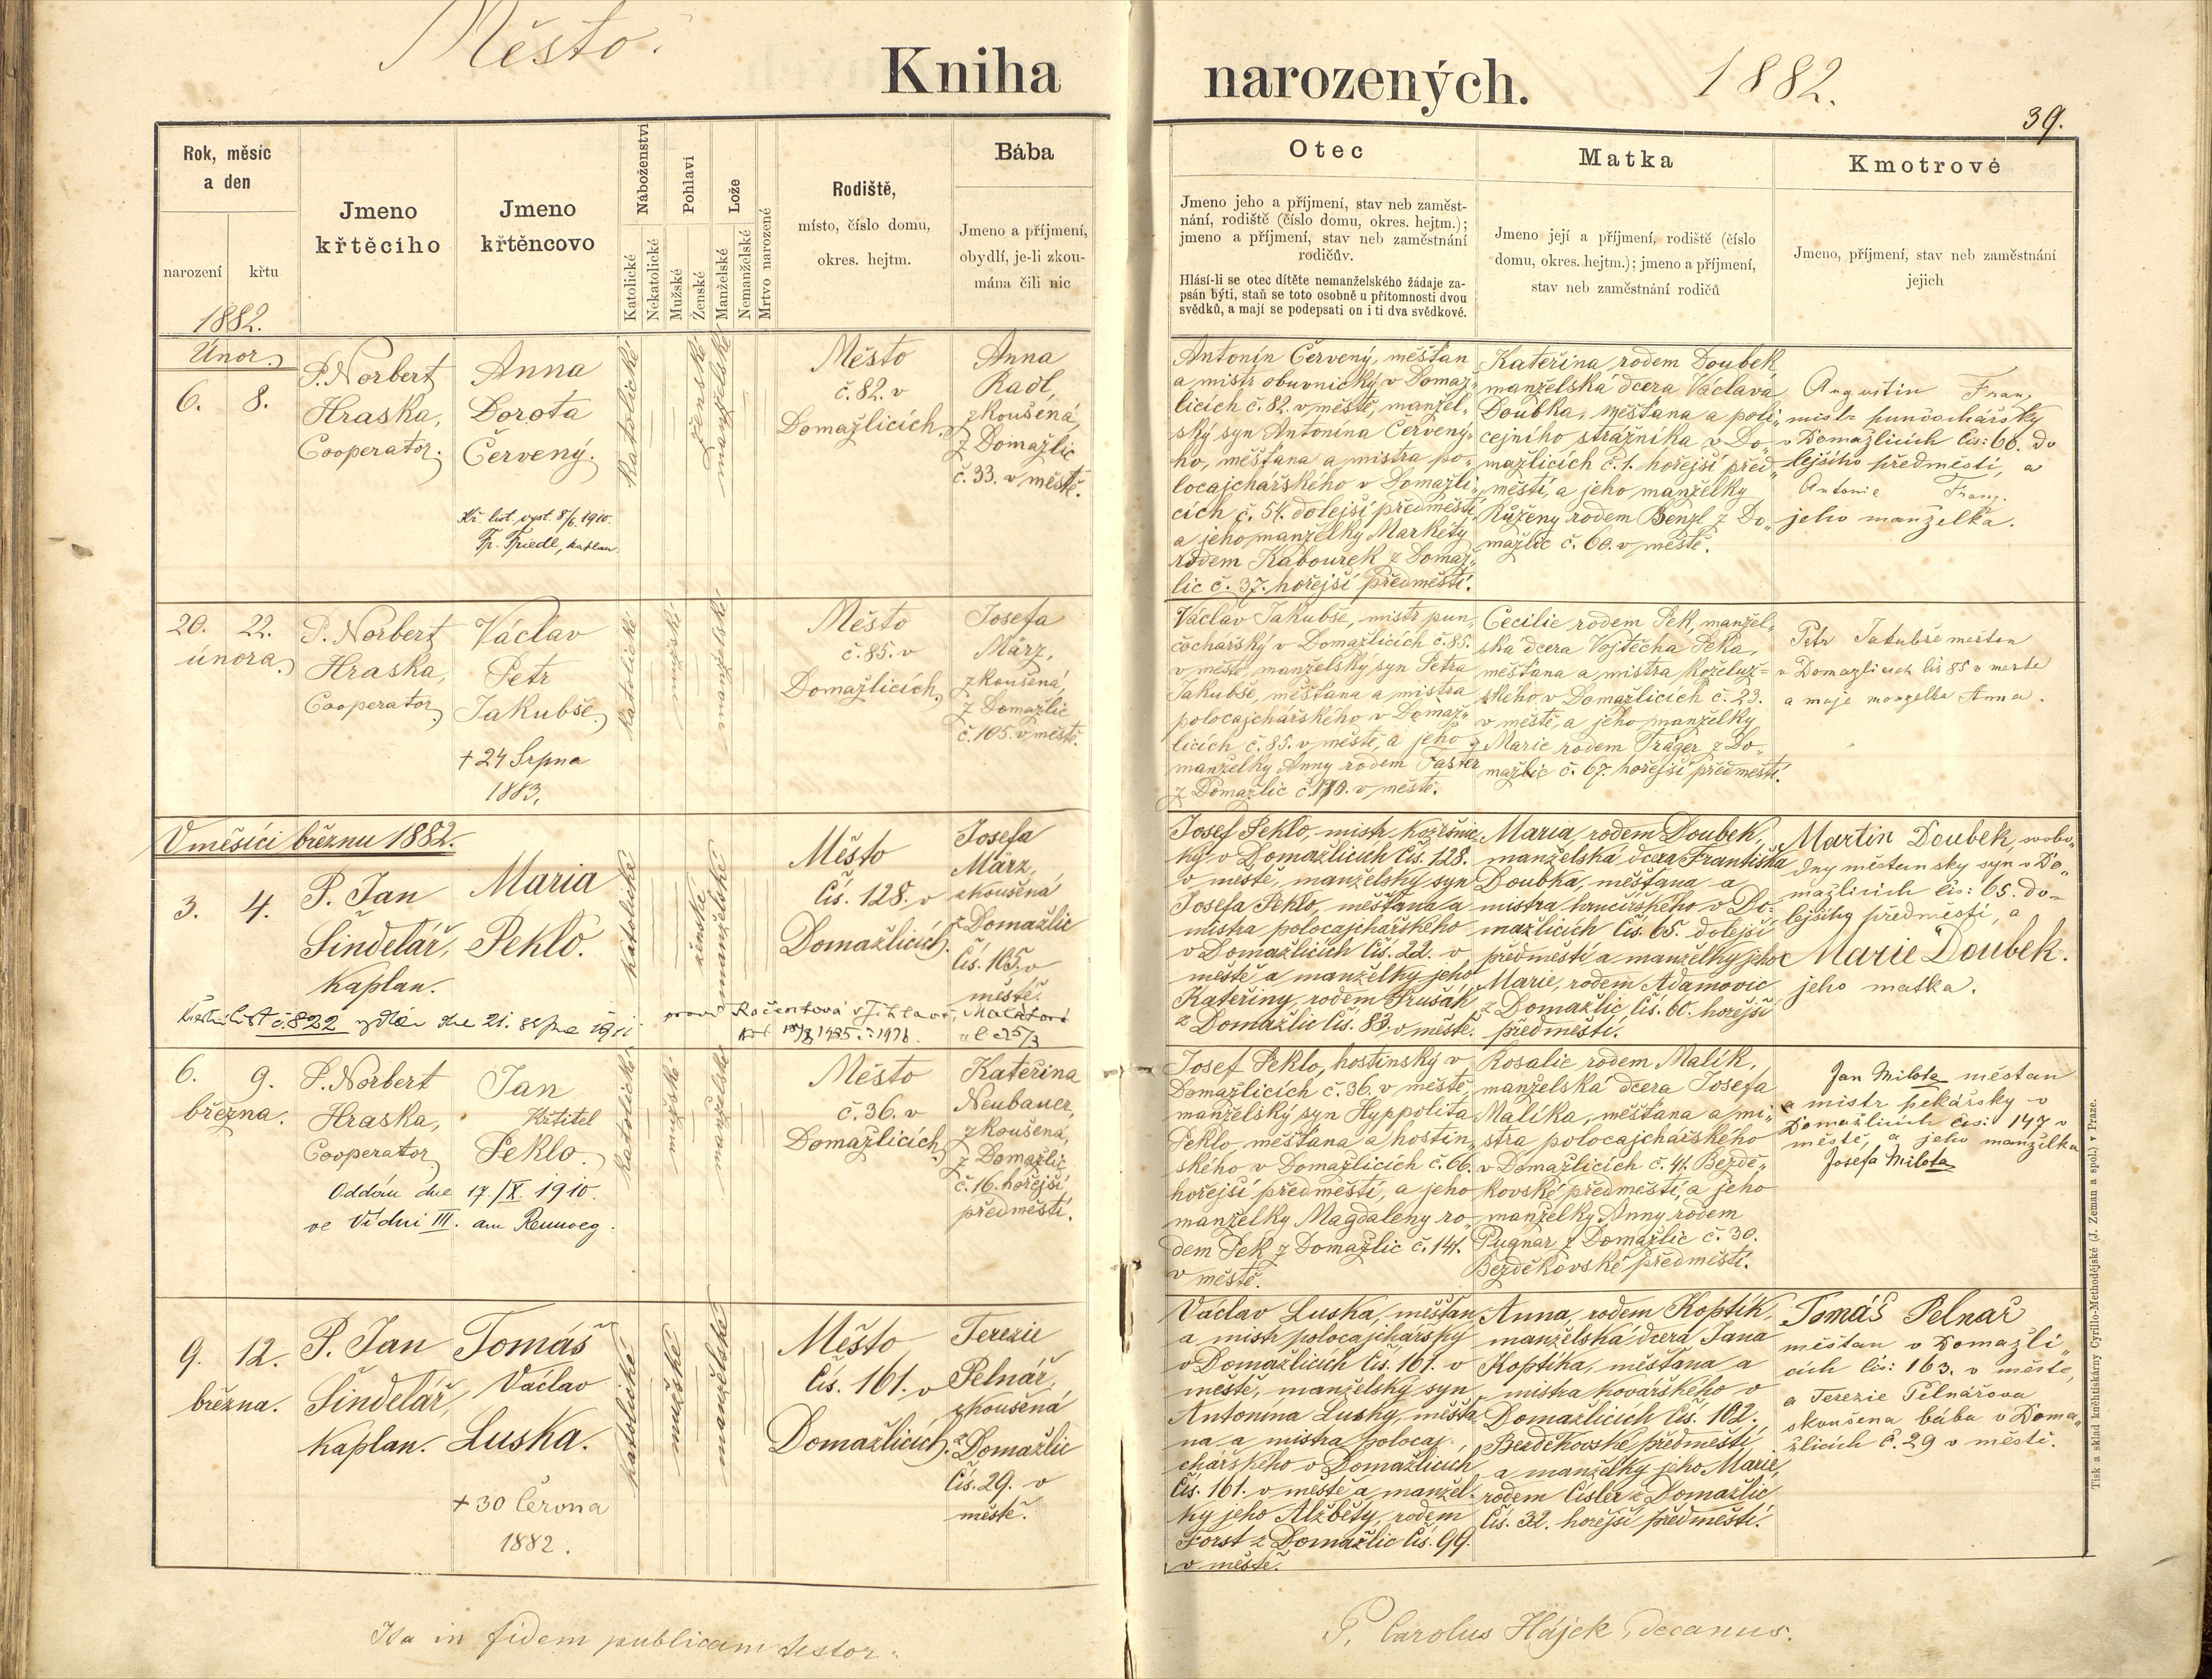 Město.
Kniha
narozených.
1882.
39.
Rok, měsíc
a den
narození
křtu
1882.
Jmeno
křtěcího
Jmeno
křtěncovo
Náboženství
Katolické
Nekatolické
Pohlaví
Mužské
Ženské
Lože
Manželské
Nemanželské
Mrtvo narozené
Rodiště,
místo, číslo domu,
okres. hejtm.
Bába
Jmeno a příjmení,
obydlí, je-li zkou-
mána čili nic
Otec
Jmeno jeho a příjmení, stav neb zaměst-
nání, rodiště (číslo domu, okres. hejtm.);
jmeno a příjmení, stav neb zaměstnání
rodičův.
Hlásí-li se otec dítěte nemanželského žádaje za-
psán býti, staň se toto osobně u přítomnosti dvou
svědků, a mají se podepsati on i ti dva svědkové.
Matka
Jmeno její a příjmení, rodiště (číslo
domu, okres. hejtm.); jmeno a příjmení,
stav neb zaměstnání rodičů
Kmotrové
Jmeno, příjmení, stav neb zaměstnání
jejich
Únor
6. 8.
P. Norbert
Hraska,
Cooperator.
Anna
Dorota
Červený.
Kř. list vyst. 8/6. 1910.
Fr. Friedl, kaplan.
katolické
ženské
manželské
Město
č. 82. v
Domažlicích
Anna
Radl,
zkoušená,
z Domažlic
č. 33. v městě.
Antonín Červený, měšťan
a mistr obuvnický v Domaž-
licích č. 82. v městě, manžel-
ský syn Antonína Červený-
ho, měšťana a mistra po-
locajchářského v Domažli-
cích č. 54. dolejší předměstí
a jeho manželky Markéty
rodem Kabourek z Domaž-
lic č. 37. hořejší předměstí.
Kateřina rodem Doubek
manželská dcera Václava
Doubka, měšťana a poli-
cejního strážníka v Do-
mažlicích č. 1. hořejší před-
městí, a jeho manželky
Růženy rodem Benzl z Do-
mažlic č. 60. v městě.
Augustin Franz
mistr punčochářský
v Domažlicích čís: 66. do
lejšího předměstí, a
Antonie Franz.
jeho manželka.
20. 22.
února
P. Norbert
Hraska,
Cooperator
Václav
Petr
Jakubše
+ 24 Srpna
1883.
katolické
mužské
manželské
Město
č. 85. v
Domažlicích
Josefa
März,
zkoušená,
z Domažlic
č. 105. v městě.
Václav Jakubše, mistr pun-
čochářský v Domažlicích č. 85.
v městě, manželský syn Petra
Jakubše, měšťana a mistra
polocajchářského v Domaž-
licích č. 85. v městě, a jeho
manželky Anny rodem Faster
z Domažlic č. 110. v městě.
Cecilie rodem Pek, manžel-
ská dcera Vojtěcha Peka,
měšťana a mistra koželuž-
ského v Domažlicích č. 23.
v městě, a jeho manželky
Marie rodem Träger z Do-
mažlic č. 67. hořejší předměstí.
Petr Jakubše mešten
v Domazlicich čis 85 v meste
a moje manzelka Anna.
V měsíci březnu 1882.
3. 4.
P. Jan
Šindelář,
kaplan.
Maria
Peklo.
Křestní list č. 822 vydán dne 21. srpna
katolické
ženské
manželské
Město
Čís. 128. v
Domažlicích.
Josefa
März,
zkoušená
z Domažlic
Čís. 105. v
městě.
Josef Peklo, mistr kožešnic-
ký v Domažlicích Čís. 128.
v městě, manželský syn
Josefa Peklo, měšťana a
mistra polocajchářského
v Domažlicích Čís. 22. v
městě a manželky jeho
Kateřiny, rodem Prušák
z Domažlic Čís. 83. v městě.
Maria rodem Doubek,
manželská dcera Františka
Doubka, měšťana a
mistra hrnčířského v Do-
mažlicích Čís. 65. dolejší
předměstí a manželky jeho
Marie, rodem Adamovic
z Domažlic, Čís. 60. hořejší
předměstí.
Martin Doubek, svobo-
dny měštansky syn v Do-
mažlicích čís: 65. do-
lejšiho předměstí, a
Marie Doubek.
jeho matka.
6. 9.
března.
P. Norbert
Hraska,
Cooperator
Jan
Křtitel
Peklo
Oddán dne 17./X. 1910.
ve Vídni III. am Rennweg.
katolické
mužské
manželské
Město
č. 36. v
Domažlicích
Kateřina
Neubauer,
zkoušená,
z Domažlic
č. 16. hořejší
předměstí.
Josef Peklo, hostinský v
Domažlicích č. 36. v městě,
manželský syn Hyppolita
Peklo, měšťana a hostin-
ského v Domažlicích č. 66.
hořejší předměstí, a jeho
manželky Magdaleny ro-
dem Pek z Domažlic č. 141.
v městě.
Rosalie rodem Malík,
manželská dcera Josefa
Malíka, měšťana a mi-
stra polocajchářského
v Domažlicích č. 41. Bezdě-
kovské předměstí, a jeho
manželky Anny rodem
Pugnar z Domažlic č. 30.
Bezděkovské předměstí.
Jan Milota městan
a mistr pekářsky v
Domažlicích čis: 147 v
městě, a jeho manželka
Josefa Milota
9. 12.
března.
P. Jan
Šindelář,
kaplan.
Tomáš
Václav
Luska.
+ 30 Června
1882.
katolické
mužské
manželské
Město
Čís. 161. v
Domažlicích.
Terezie
Pelnář,
zkoušená
z Domažlic
Čís. 29. v
městě.
Václav Luska, měšťan
a mistr polocajchářský
v Domažlicích Čís. 161. v
městě, manželský syn
Antonína Lusky, měšťa-
na a mistra polocaj-
chářského v Domažlicích
Čís. 161. v městě a manžel-
ky jeho Alžběty, rodem
Forst z Domažlic Čís. 99.
v městě.
Anna, rodem Koptík,
manželská dcera Jana
Koptíka, měšťana a
mistra kovářského v
Domažlicích Čís. 102.
Bezděkovské předměstí
a manželky jeho Marie,
rodem Císler z Domažlic
Čís. 32. hořejší předměstí.
Tomáš Pelnař
měštan v Domažli-
cích čís: 163. v městě,
a Terezie Pelnářova
skoušena bába v Doma-
žlicích č. 29 v městě.
Ita in fidem publicam testor.
P. Carolus Hájek, decanus.
Tisk a sklad kněhtiskárny Cyrillo-Methodějské (J. Zeman a spol.) v Praze.